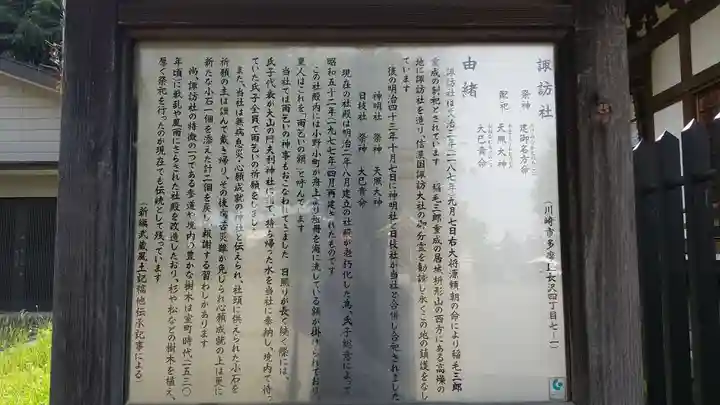 諏訪社
(川崎市多摩区長沢四丁目七ー一)
祭神 建御名方命
配祀 天照大神
大己貴命
由緒
諏訪社は文治三年(一一八七年)九月七日右大将源頼朝の命により稲毛三郎
重成の創祀とされています 稲毛三郎重成の居城枡形山の西方にある高燥の
地に諏訪社を造り、信濃国諏訪大社の御分霊を勧請し永くこの地の鎮護をなし
ています
後の明治四十三年十月七日に神明社と日枝社が当社と合併し合祀されました
神明社 祭神 天照大神
日枝社 祭神 大己貴命
現在の社殿は明治二年八月建立の社殿が老朽化した為、氏子総意によって
昭和五十二年(一九七七年)四月再建されたものです
この社殿内には小野小町が舟上より祖母を海に流している額が掛けられており
里人はこれを「雨乞いの額」と呼んでます
当社では雨乞いの神事もおこなわれてきました 日照りが長く続く際には、
氏子代表が大山の阿夫利神社に詣で、持ち帰てた水を当社に奉納し、境内で待っ
ていた氏子全員で雨乞いの祈願をなし
また、当社は無病息災、心願成就の神社と伝えられ、社頭に供えられた小石を
祈願の主は認めて戴き帰り、その後病苦災難が免じられ心願成就の上は更に
新たな小石一個を添えた計二個を戻し報謝する習わしがあります
尚、諏訪社の特徴の一つである参道や境内の豊かな樹木は室町時代(一五三〇
年頃)に戦乱や風雨にさらされた社殿を改造したおり、杉や松などの樹木を植え、
厚く祭祀を行ったのが現在でも伝統として残っています
(新編武蔵風土記稿他伝承記事による)